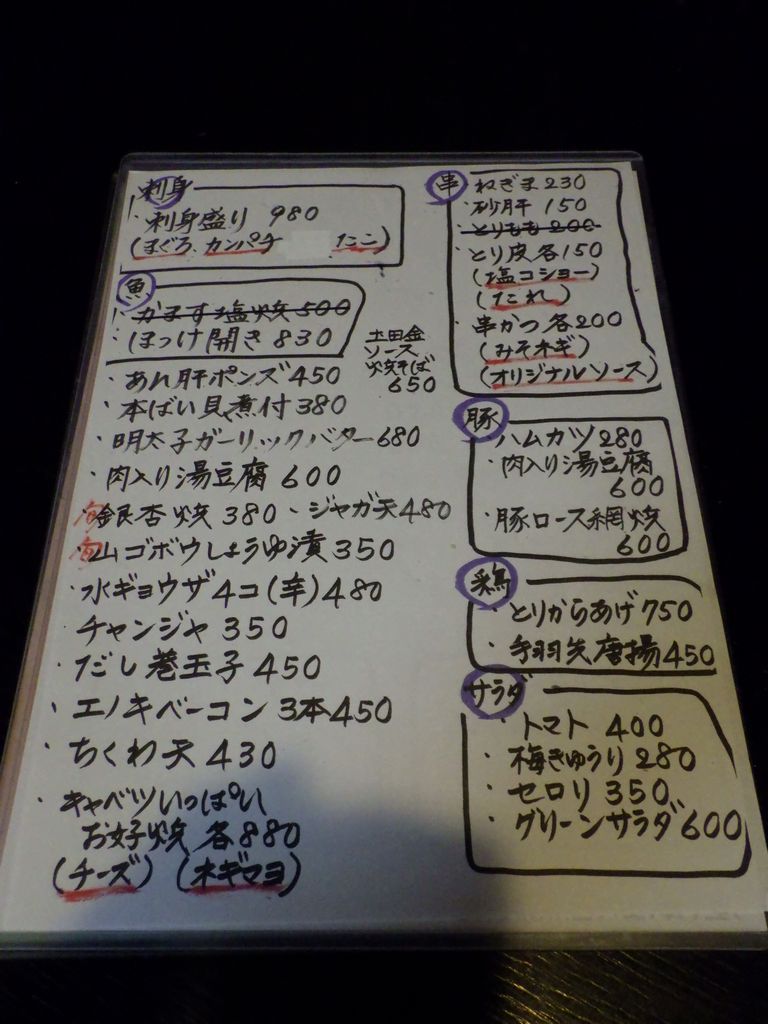 刺身
・刺身盛り 980
(まぐろ カンパチ たこ)
魚
・かます塩焼 500
・ほっけ開き 830
土田金
ソース
焼そば
650
・あん肝ポンズ 450
・本ばい貝煮付 380
・明太子ガーリックバター 680
・肉入り湯豆腐 600
旬 銀杏焼 380 ・ジャガ天 480
旬 山ゴボウしょうゆ漬 350
・水ギョウザ4コ(辛) 480
・チャンジャ 350
・だし巻玉子 450
・エノキベーコン 3本 450
・ちくわ天 430
・キャベツいっぱい
お好焼 各880
(チーズ) (ネギマヨ)
串
・ねぎま 230
・砂肝 150
・とりもも 200
・とり皮各150
(塩コショー)
(たれ)
・串かつ各200
(みそネギ)
(オリジナルソース)
豚
・ハムカツ 280
・肉入り湯豆腐
600
・豚ロース網焼
600
鶏
・とりからあげ 750
・手羽先唐揚 450
サラダ
・トマト 400
・梅きゅうり 280
・セロリ 350
・グリーンサラダ 600